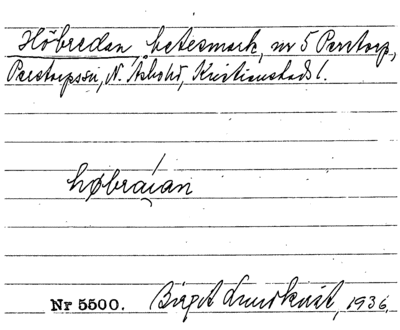 Höbredan, betesmark, nr 5 Perstorp,
Perstorps sn, N. Åsbohd, Kristianstads l.
høbraian
Nr 5500. Birgit Lundkvist, 1936.